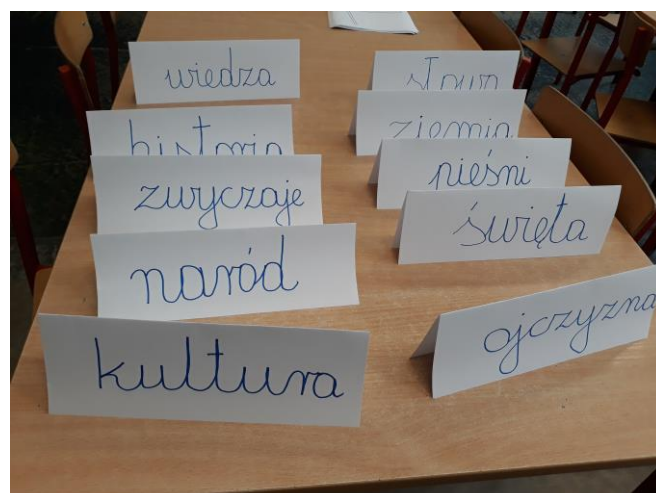 wiedza
historia
zwyczaje
naród
kultura
słowa
ziemia
pieśni
święta
ojczyzna